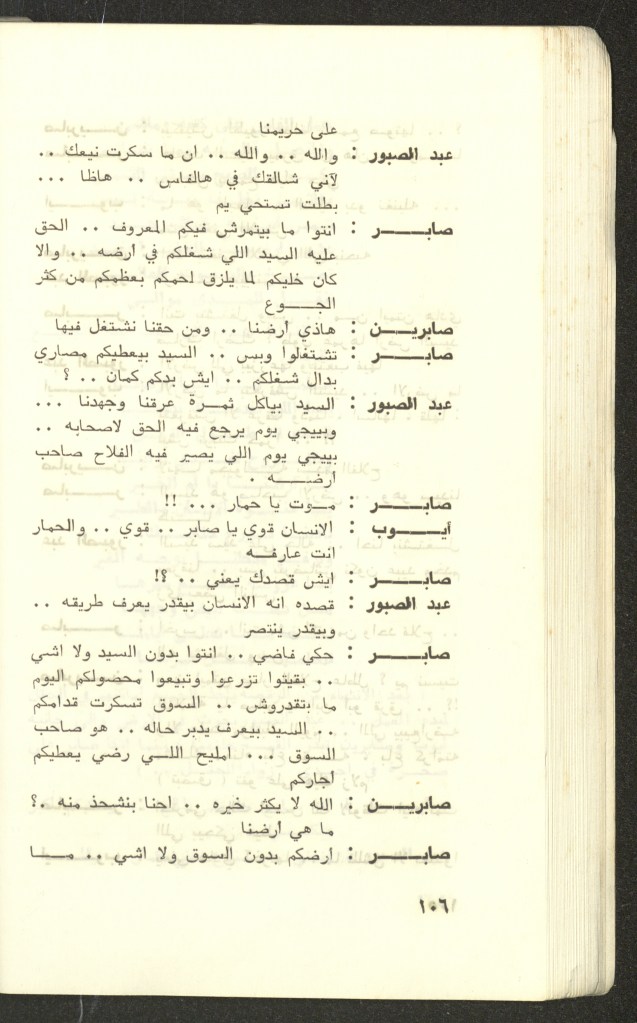 على حريمنا
عبد الصبور : والله .. والله .. ان ما سكرت نيعك ..
لآني شالقك في هالفاس .. هاظا ...
بطلت تستحي يم
صابــــــر : انتوا ما بيتمرش فيكم المعروف .. الحق
عليه السيد اللي شغلكم في أرضه .. والا
كان خليكم لما يلزق لحمكم بعظمكم من كثر
الجـــــوع
صابريـــن : هاذي أرضنا .. ومن حقنا نشتغل فيها
صابــــــر : تشتغلوا وبس .. السيد بيعطيكم مصاري
بدال شغلكم .. ايش بدكم كمان .. ؟
عبد الصبور : السيد بياكل ثمــرة عرقنا وجهدنا ...
وبييجي يوم يرجع فيه الحق لاصحابه ..
بييجي يوم اللي يصير فيه الفلاح صاحب
أرضـــــه .
صابــــــر : مــوت يا حمار ... !!
أيـــــوب : الانسان قوي يا صابر .. قوي .. والحمار
انت عارفــه
صابــــــر : ايش قصدك يعني .. ؟!
عبد الصبور : قصده انه الانسان بيقدر يعرف طريقه ..
وبيقدر ينتصر
صابــــــر : حكي فاضي .. انتوا بدون السيد ولا اشي
.. بقيتوا تزرعوا وتبيعوا محصولكم اليوم
ما بتقدروش .. السوق تسكرت قدامكم
.. السيد بيعرف يدبر حاله .. هو صاحب
السوق ... امليح اللــي رضي يعطيكم
أجاركم
صابريـــن : الله لا يكثر خيره .. احنا بنشحذ منه .؟
ما هي أرضنا
صابــــــر : أرضكم بدون السوق ولا اشي .. مـــا
١٠٦